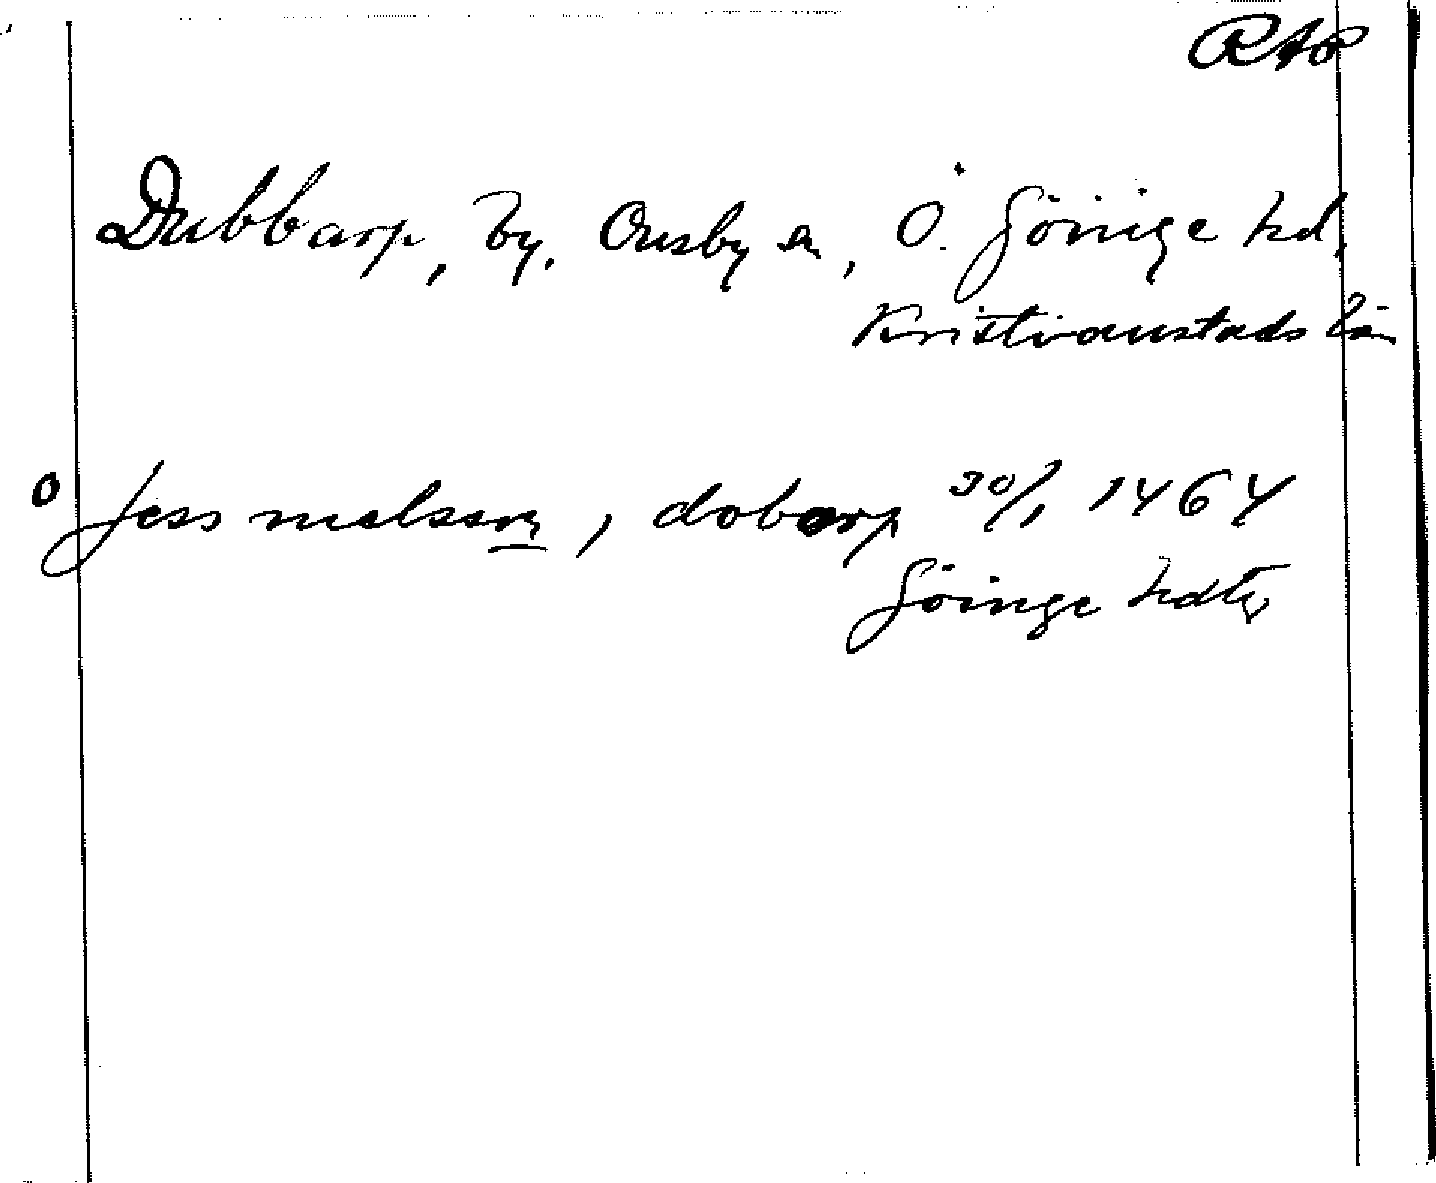 RAP
Dubbarp, by, Ousby sn, Ö. Göinge hd,
Kristianstads län
o Jess nielssøn, dobarp 30/1 1464
Göinge hdtg